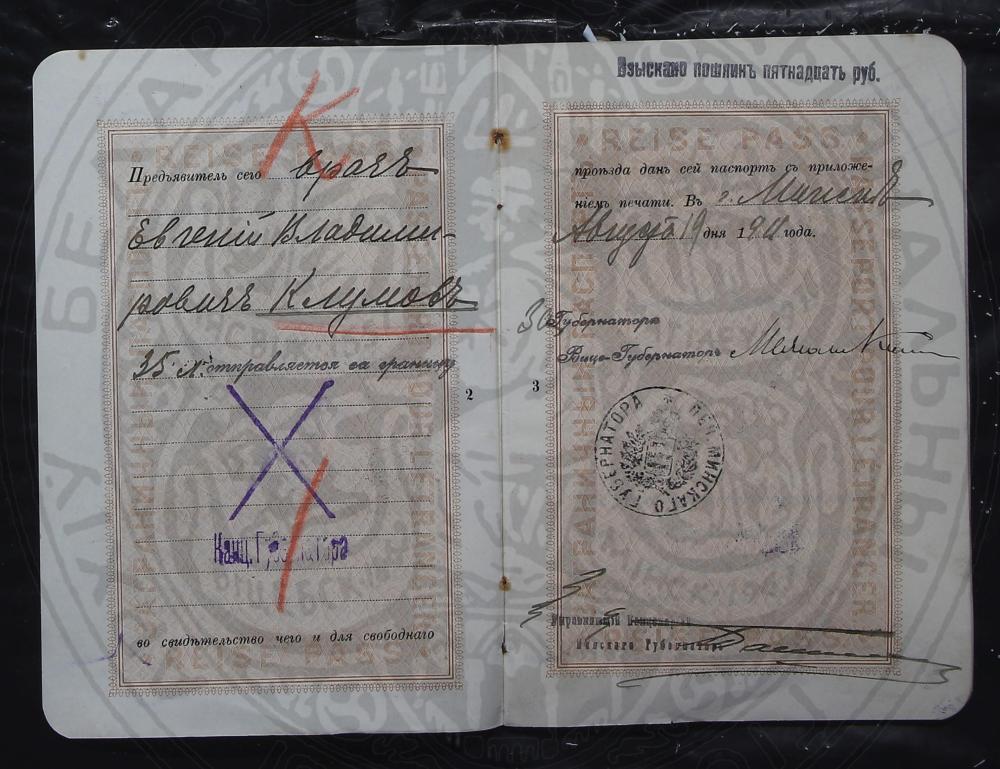 К
REISE PASS
Предъявитель сего врачъ
Евгеній Владими-
ровичъ Клумовъ
35 л. отправляется за границу
Канц. Губернатора
во свидѣтельство чего и для свободнаго
REISE PASS
2
Взыскано пошлинъ пятнадцать руб.
REISE PASS
проѣзда данъ сей паспортъ съ приложе-
ніемъ печати. Въ г. Минскѣ
Августа 19 дня 1911 года.
За Губернатора
Вице-Губернаторъ
3
ПЕЧ. МИНСКАГО ГУБЕРНАТОРА
PASSEPORT POUR L'ÉTRANGER
Управляющій Канцеляріей
Минскаго Губернатора
REISE PASS